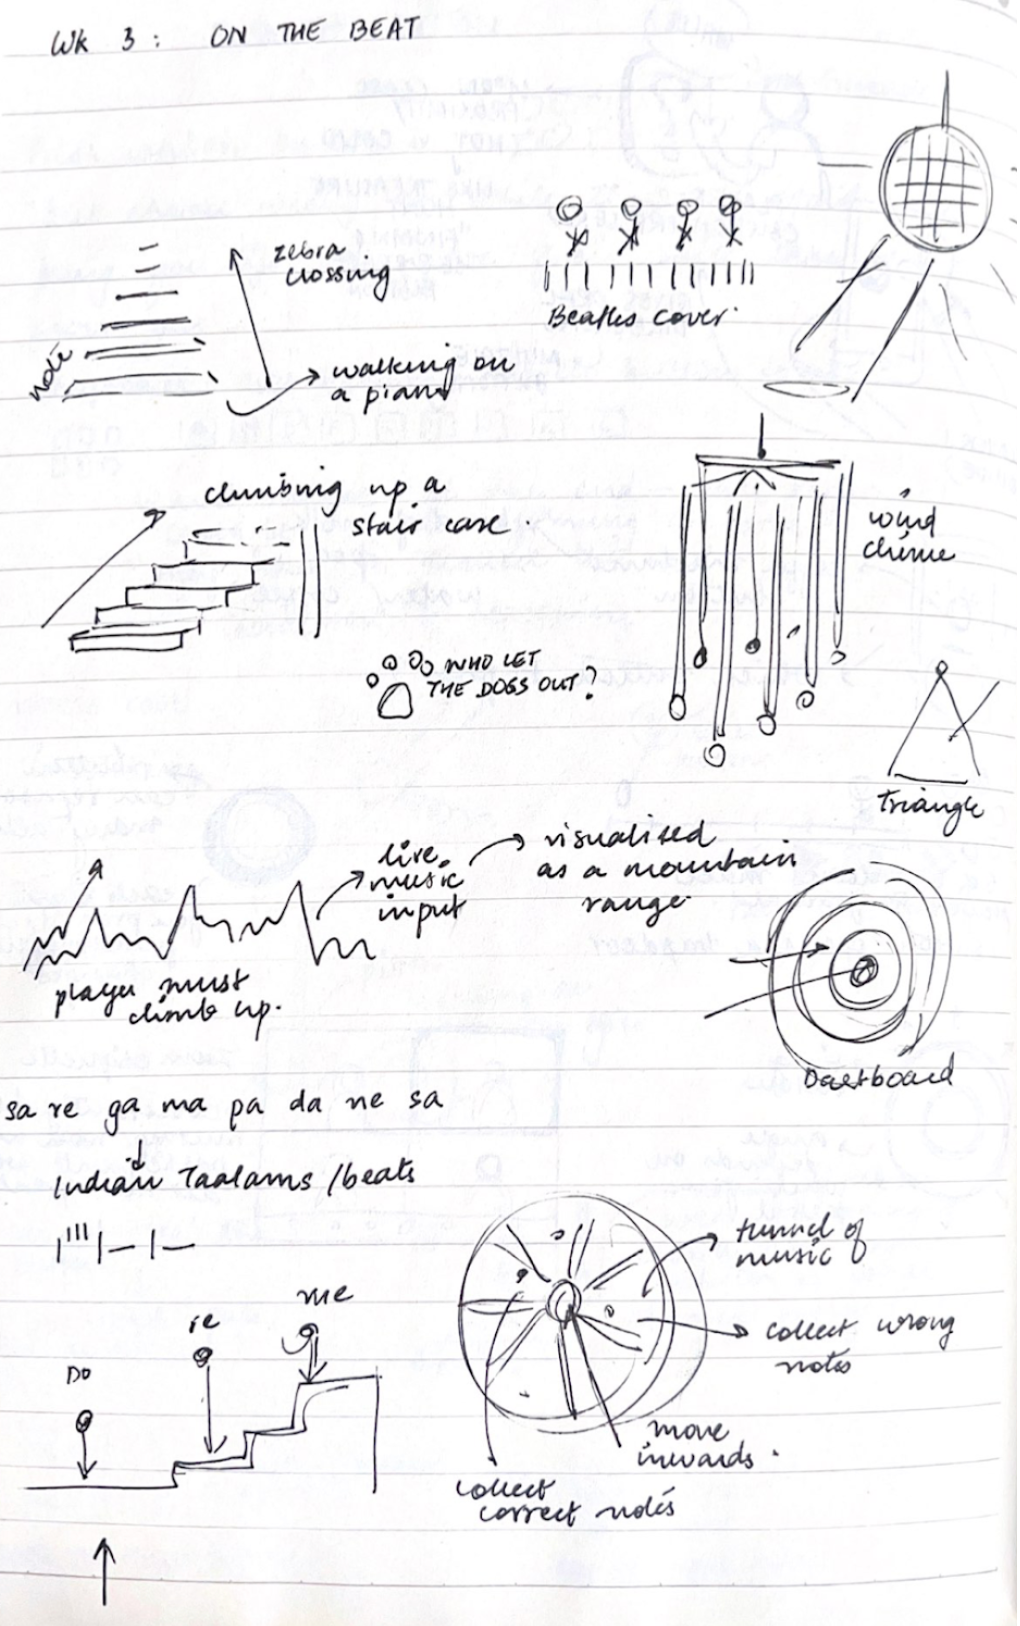 Wk 3 : ON THE BEAT
zebra
crossing
Beatles cover.
note
walking on
a piano
climbing up a
stair case.
wind
chime
WHO LET
THE DOGS OUT?
Triangle
live
music
input
visualised
as a mountain
range.
player must
climb up.
Dartboard
sa re ga ma pa da ne sa
Indian Taalams / beats
tunnel of
music
me
re
Do
collect wrong
notes
move
inwards.
collect
correct notes